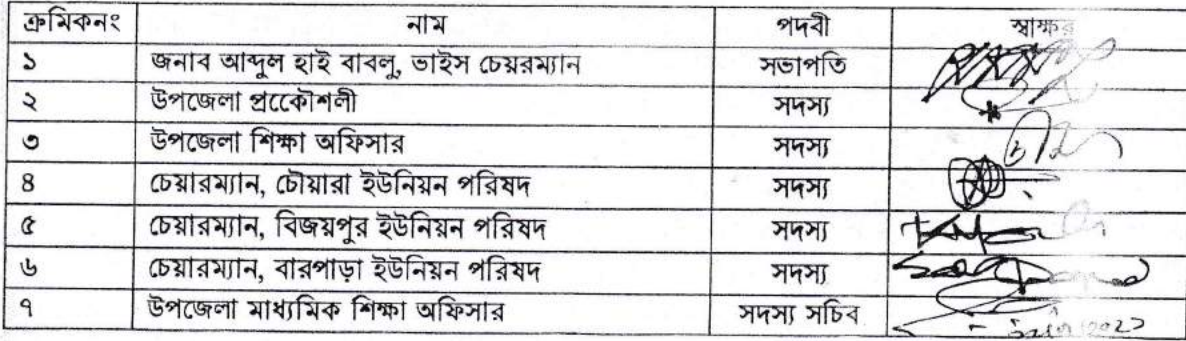 ক্রমিকনং নাম পদবী স্বাক্ষর
১ জনাব আব্দুল হাই বাবলু, ভাইস চেয়রম্যান সভাপতি
২ উপজেলা প্রকৌশলী সদস্য
৩ উপজেলা শিক্ষা অফিসার সদস্য
৪ চেয়ারম্যান, চৌয়ারা ইউনিয়ন পরিষদ সদস্য
৫ চেয়ারম্যান, বিজয়পুর ইউনিয়ন পরিষদ সদস্য
৬ চেয়ারম্যান, বারপাড়া ইউনিয়ন পরিষদ সদস্য
৭ উপজেলা মাধ্যমিক শিক্ষা অফিসার সদস্য সচিব